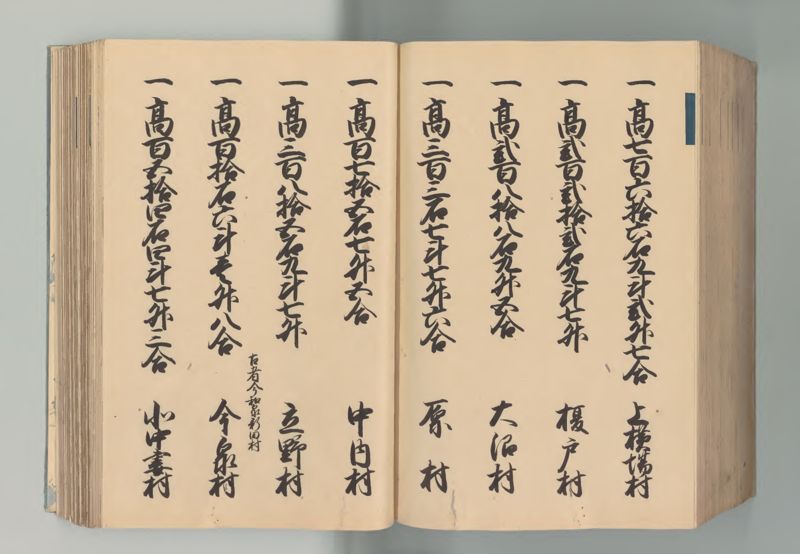 一高七百六拾六石九斗弐升七合 上横場村
一高弐百弐拾弐石九斗七升 榎戸村
一高弐百八拾八石九升五合 大沼村
一高三百三石七斗七升六合 原村
一高百七拾五石七升五合 中内村
一高三百八拾五石九斗七升 立野村
古者今和泉新田村
一高百拾石六斗壱升八合 今泉村
一高百五拾四石四斗七升三合 小中妻村